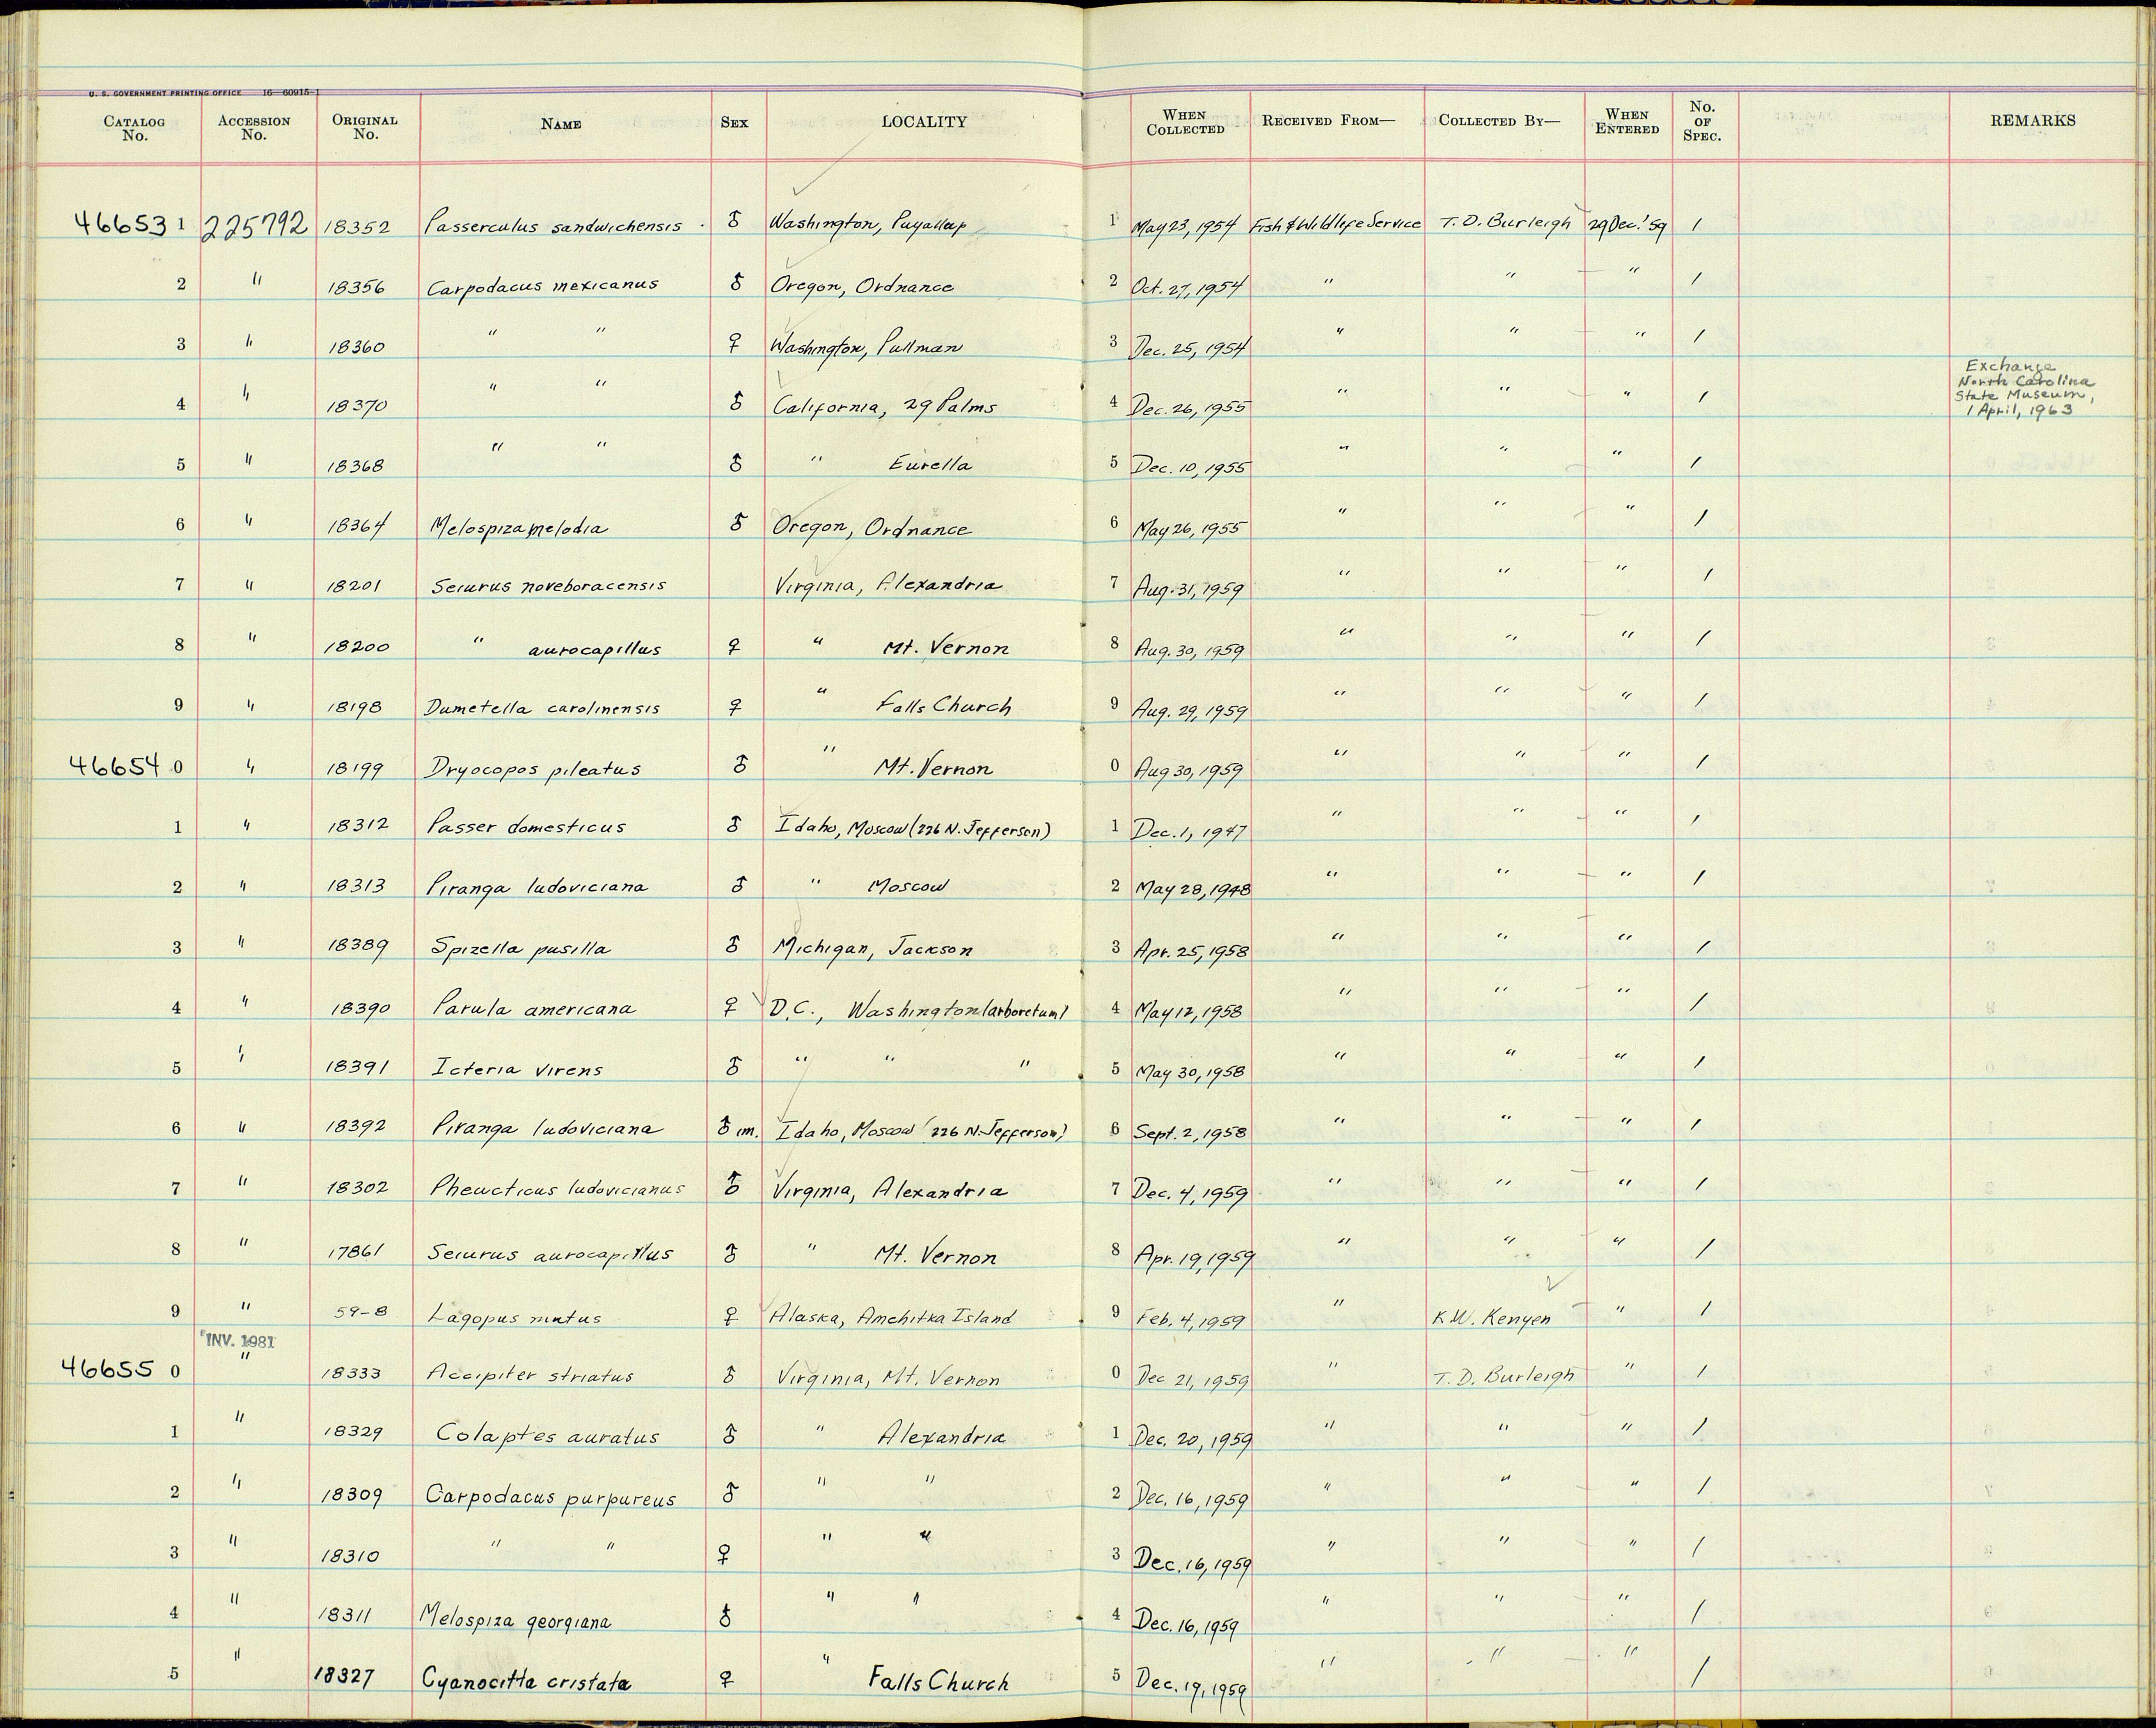 U. S. GOVERNMENT PRINTING OFFICE 16—60915-1
CATALOG No. ACCESSION No. ORIGINAL No. NAME SEX LOCALITY WHEN COLLECTED RECEIVED FROM— COLLECTED BY— WHEN ENTERED No. OF SPEC. REMARKS
46653 1 225792 18352 Passerculus sandwichensis ♂ Washington, Puyallup 1 May 23, 1954 Fish & Wildlife Service T. D. Burleigh 29 Dec. '59 1
2 " 18356 Carpodacus mexicanus ♂ Oregon, Ordnance 2 Oct. 27, 1954 " " " 1
3 " 18360 " " ♀ Washington, Pullman 3 Dec. 25, 1954 " " " 1
4 " 18370 " " ♂ California, 29 Palms 4 Dec. 26, 1955 " " " 1 Exchange North Carolina State Museum, 1 April, 1963
5 " 18368 " " ♂ " Eurella 5 Dec. 10, 1955 " " " 1
6 " 18364 Melospiza melodia ♂ Oregon, Ordnance 6 May 26, 1955 " " " 1
7 " 18201 Seiurus noveboracensis Virginia, Alexandria 7 Aug. 31, 1959 " " " 1
8 " 18200 " aurocapillus ♀ " Mt. Vernon 8 Aug. 30, 1959 " " " 1
9 " 18198 Dumetella carolinensis ♀ " Falls Church 9 Aug. 29, 1959 " " " 1
46654 0 " 18199 Dryocopos pileatus ♂ " Mt. Vernon 0 Aug 30, 1959 " " " 1
1 " 18312 Passer domesticus ♂ Idaho, Moscow (226 N. Jefferson) 1 Dec. 1, 1947 " " " 1
2 " 18313 Piranga ludoviciana ♂ " Moscow 2 May 28, 1948 " " " 1
3 " 18389 Spizella pusilla ♂ Michigan, Jackson 3 Apr. 25, 1958 " " " 1
4 " 18390 Parula americana ♀ D.C., Washington (arboretum) 4 May 12, 1958 " " " 1
5 " 18391 Icteria virens ♂ " " " 5 May 30, 1958 " " " 1
6 " 18392 Piranga ludoviciana ♂ im. Idaho, Moscow (226 N. Jefferson) 6 Sept. 2, 1958 " " " 1
7 " 18302 Pheucticus ludovicianus ♂ Virginia, Alexandria 7 Dec. 4, 1959 " " " 1
8 " 17861 Seiurus aurocapillus ♂ " Mt. Vernon 8 Apr. 19, 1959 " " " 1
9 " 59-8 Lagopus mutus ♀ Alaska, Amchitka Island 9 Feb. 4, 1959 " K. W. Kenyen " 1
INV. 1981
46655 0 " 18333 Accipiter striatus ♂ Virginia, Mt. Vernon 0 Dec 21, 1959 " T. D. Burleigh " 1
1 " 18329 Colaptes auratus ♂ " Alexandria 1 Dec. 20, 1959 " " " 1
2 " 18309 Carpodacus purpureus ♂ " " 2 Dec. 16, 1959 " " " 1
3 " 18310 " " ♀ " " 3 Dec. 16, 1959 " " " 1
4 " 18311 Melospiza georgiana ♂ " " 4 Dec. 16, 1959 " " " 1
5 " 18327 Cyanocitta cristata ♀ " Falls Church 5 Dec. 19, 1959 " " " 1